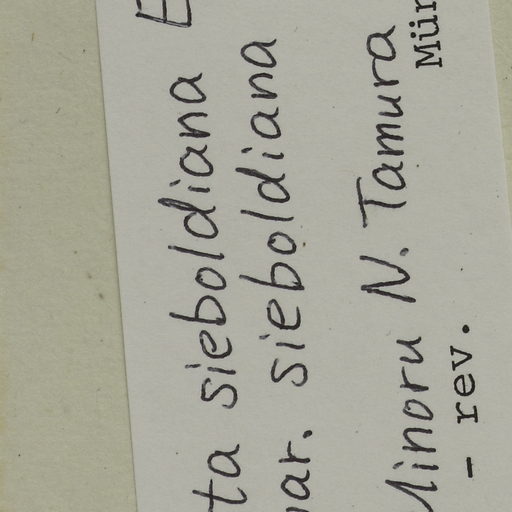 ta sieboldiana E
ar. sieboldiana
Minoru N. Tamura
- rev. Mün